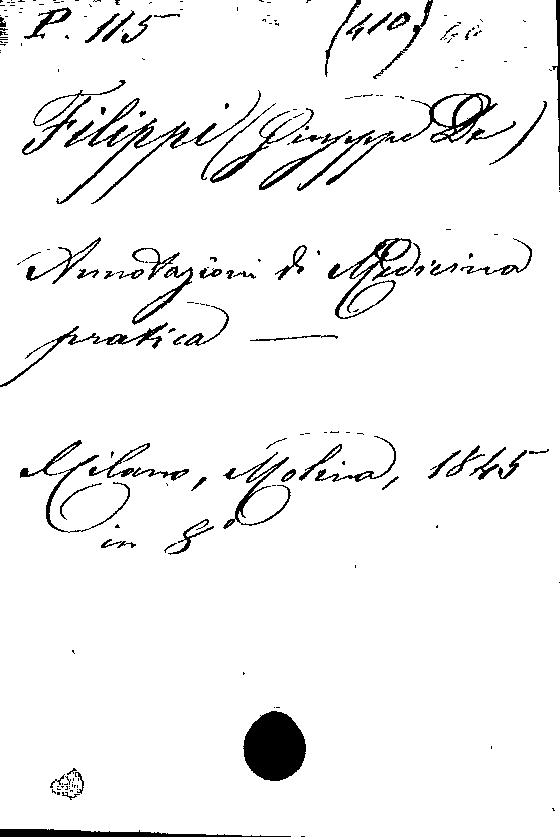 P. 115 (410)
Filippi (Giuseppe De)
Annotazioni di Medicina
pratica —
Milano, Molina, 1845
in 8°